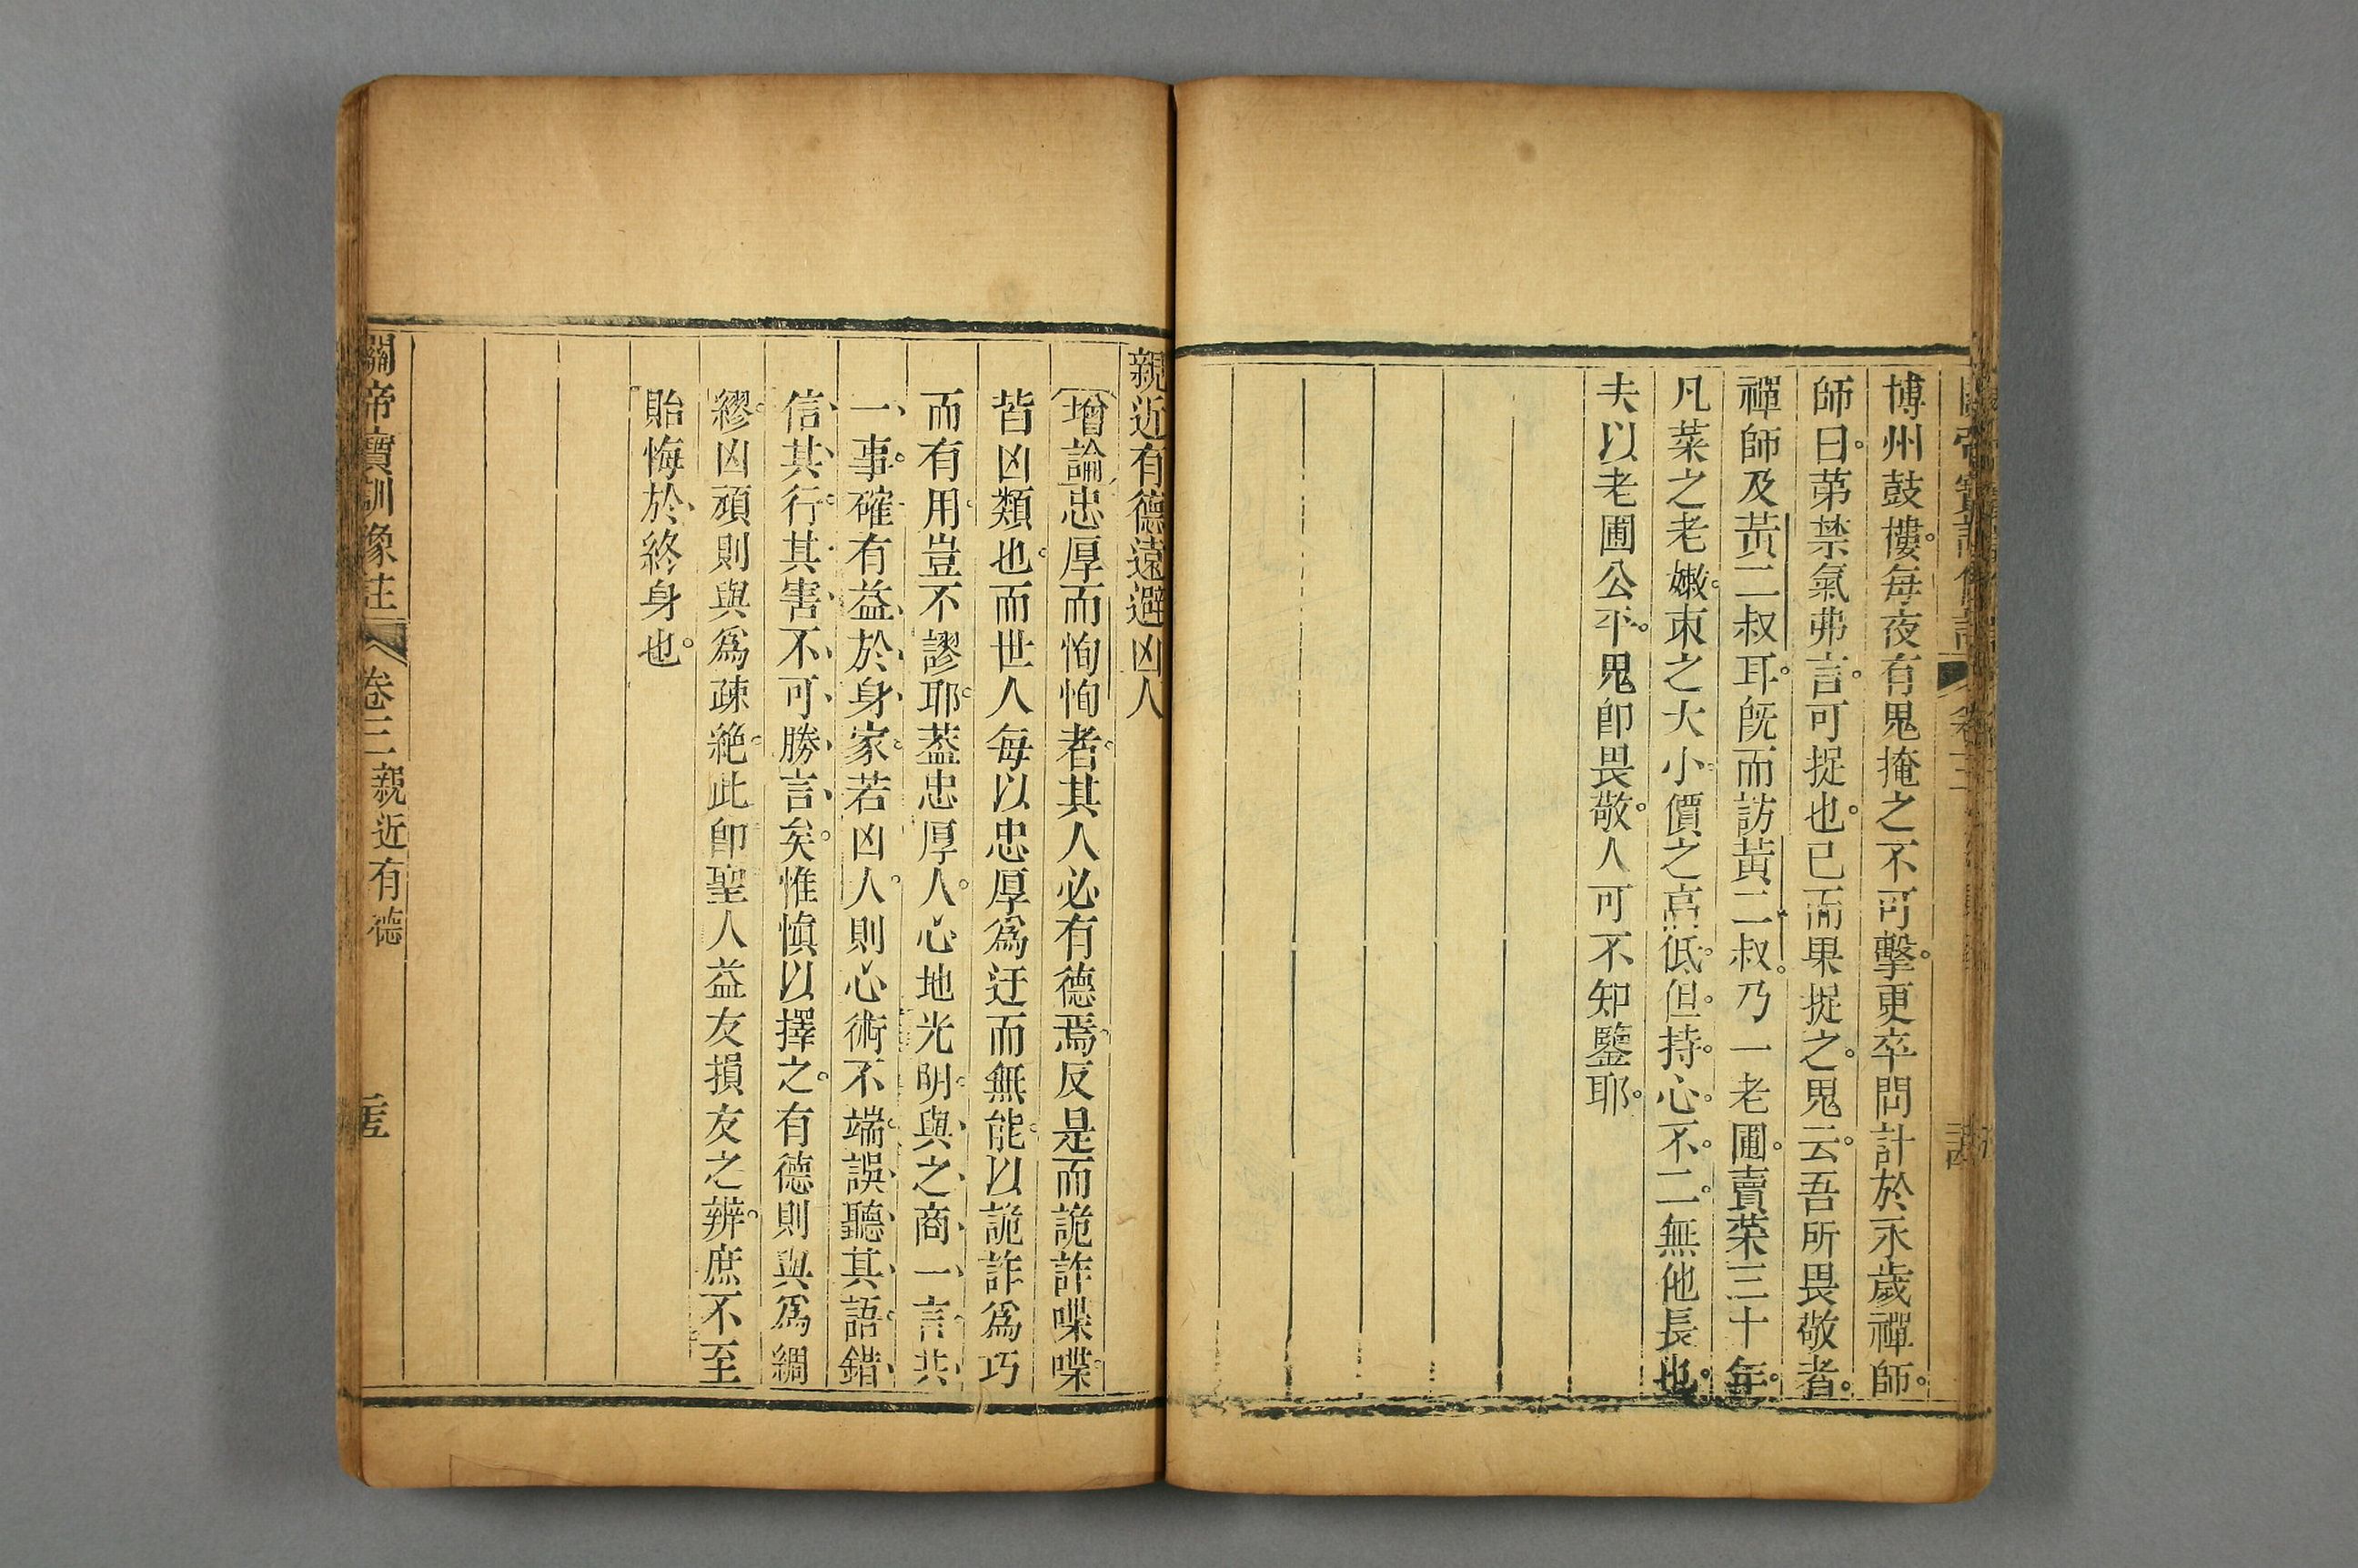 博州鼓樓。每夜有鬼掩之不可擊。更卒問計於永歲禪師。
師曰。第禁氣弗言。可捉也。已而果捉之。鬼云。吾所畏敬者。
禪師及黃二叔耳。旣而訪黃二叔。乃一老圃。賣菜三十年。
凡菜之老嫩。束之大小。價之高低。但。持。心。不。二。無他長也。
夫以老圃公平。鬼卽畏敬。人可不知鑒耶。
親近有德遠避凶人
增論忠厚而恂恂者。其人必有德焉。反是而詭詐喋喋
皆凶類也。而世人每以忠厚爲迂而無能。以詭詐爲巧
而有用。豈不謬耶。葢忠厚人。心地光明。與、之、商、一、言、共、
一、事。確有益、於、身、家。若凶人。則心術不端。誤、聽、其、語。錯、
信、其、行。其、害、不、可、勝、言、矣。惟愼以擇之。有德則與爲綢
繆。凶頑則與爲疎絶。此卽聖人益友損友之辨。庶不至
貽悔於、終身也。
關帝寶訓像註 卷三 親近有德